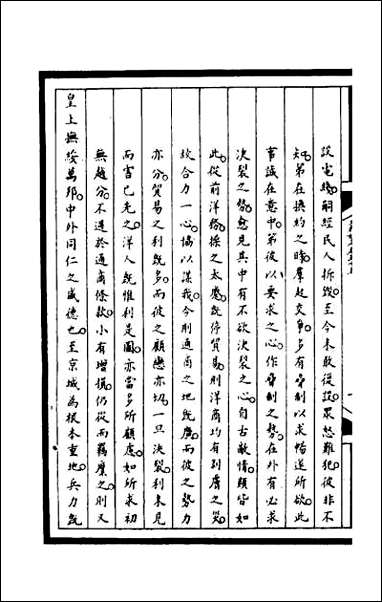 設電綫嗣經民人拆毀至今未敢復設眾怒難犯彼非不
知第在換約之時羣起交爭多有牽制以求暢遂所欲此
事誠在意中第彼以要求之心作牽制之勢在外有必求
決裂之勢愈見其中有不欲決裂之心自古敵情類皆如
此從前洋務操之太蹙既停貿易則洋商均有剝膚之災
故合力一心協以謀我今則通商之地既廣而彼之勢力
亦分貿易之利既多而彼之顧戀亦切一旦決裂利未見
而害已先之洋人既惟利是圖亦當多所顧慮如所求初
無趣分不過於通商條款小有增損仍從而羈縻之則又
皇上撫綏萬邦中外同仁之盛德也至京城為根本重地兵力既